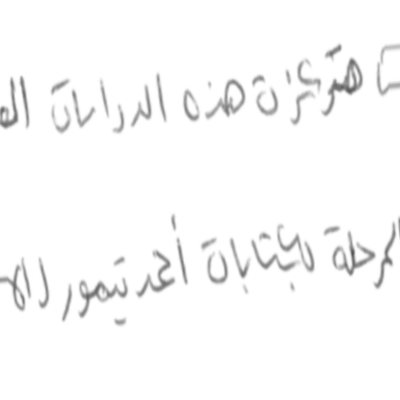 تركزت هذه الدراسات
المرحلة كتابات أحمد تيمور